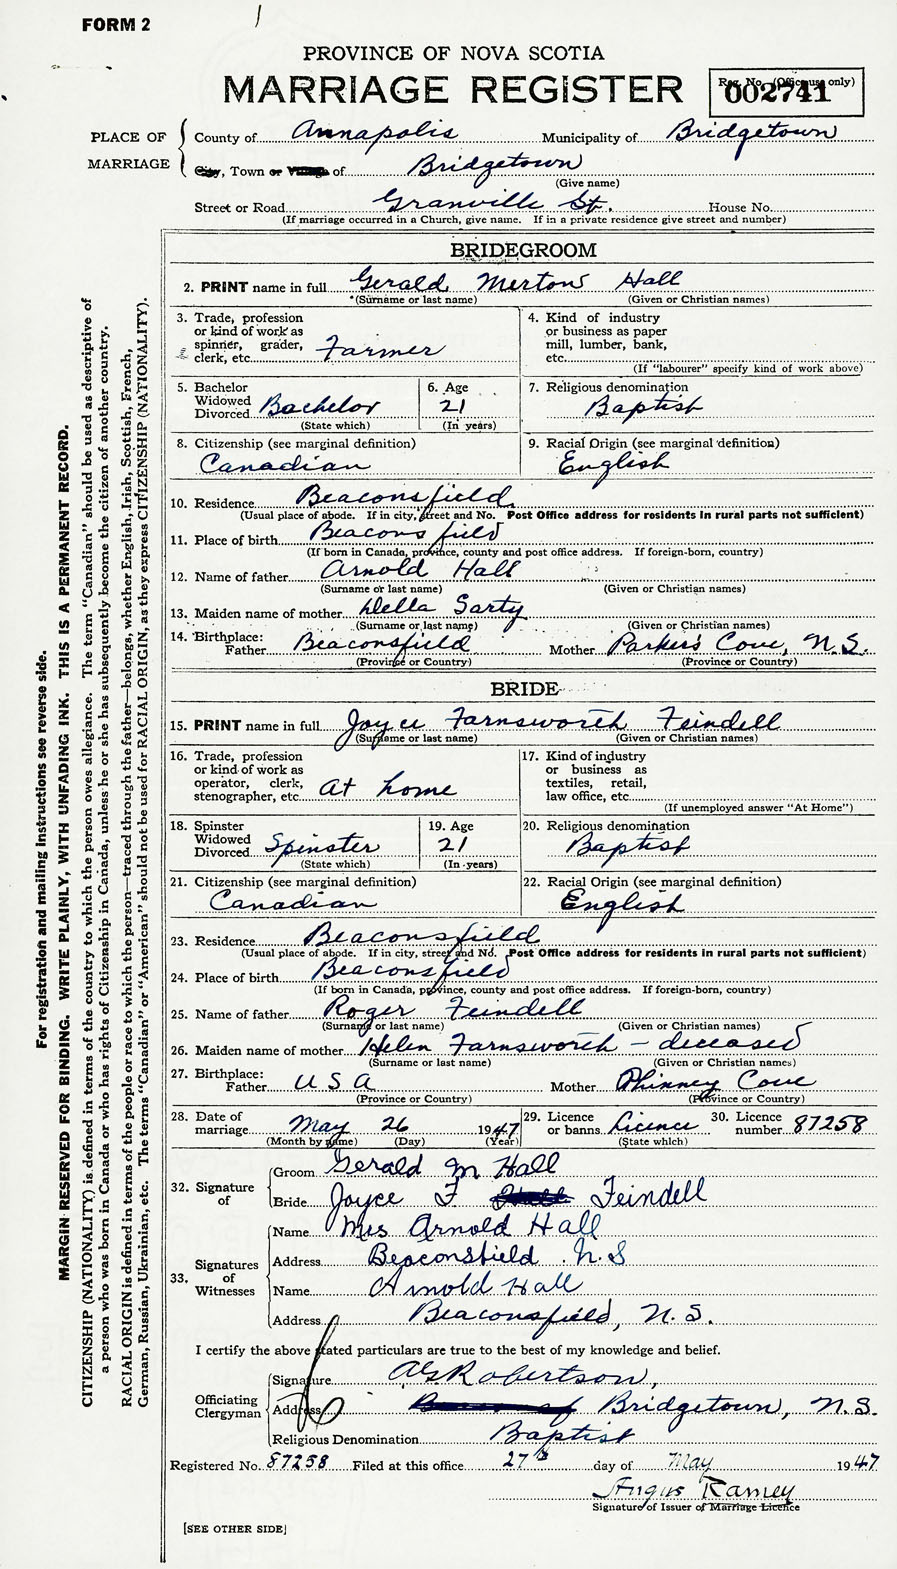 FORM 2
PROVINCE OF NOVA SCOTIA
MARRIAGE REGISTER
Reg. No. (Office use only)
002741
PLACE OF MARRIAGE
County of Annapolis Municipality of Bridgetown
City, Town or Village of Bridgetown
(Give name)
Street or Road Granville St. House No.
(If marriage occurred in a Church, give name. If in a private residence give street and number)
BRIDEGROOM
2. PRINT name in full Gerald Merton Hall
*(Surname or last name) (Given or Christian names)
3. Trade, profession
or kind of work as
spinner, grader,
clerk, etc. Farmer
4. Kind of industry
or business as paper
mill, lumber, bank,
etc.
(If "labourer" specify kind of work above)
5. Bachelor
Widowed
Divorced Bachelor
(State which)
6. Age
21
(In years)
7. Religious denomination
Baptist
8. Citizenship (see marginal definition)
Canadian
9. Racial Origin (see marginal definition)
English
10. Residence Beaconsfield
(Usual place of abode. If in city, street and No. Post Office address for residents in rural parts not sufficient)
11. Place of birth Beaconsfield
(If born in Canada, province, county and post office address. If foreign-born, country)
12. Name of father Arnold Hall
(Surname or last name) (Given or Christian names)
13. Maiden name of mother Della Sarty
(Surname or last name) (Given or Christian names)
14. Birthplace:
Father Beaconsfield Mother Parker's Cove, N.S.
(Province or Country) (Province or Country)
BRIDE
15. PRINT name in full Joyce Farnsworth Feindell
(Surname or last name) (Given or Christian names)
16. Trade, profession
or kind of work as
operator, clerk,
stenographer, etc. At home
17. Kind of industry
or business as
textiles, retail,
law office, etc.
(If unemployed answer "At Home")
18. Spinster
Widowed
Divorced Spinster
(State which)
19. Age
21
(In years)
20. Religious denomination
Baptist
21. Citizenship (see marginal definition)
Canadian
22. Racial Origin (see marginal definition)
English
23. Residence Beaconsfield
(Usual place of abode. If in city, street and No. Post Office address for residents in rural parts not sufficient)
24. Place of birth Beaconsfield
(If born in Canada, province, county and post office address. If foreign-born, country)
25. Name of father Roger Feindell
(Surname or last name) (Given or Christian names)
26. Maiden name of mother Helen Farnsworth - deceased
(Surname or last name) (Given or Christian names)
27. Birthplace:
Father U S A Mother Phinney Cove
(Province or Country) (Province or Country)
28. Date of
marriage May 26 1947
(Month by name) (Day) (Year)
29. Licence
or banns Licence
(State which)
30. Licence
number 87258
32. Signature of
Groom Gerald M Hall
Bride Joyce F Feindell
33. Signatures of Witnesses
Name Mrs Arnold Hall
Address Beaconsfield N.S
Name Arnold Hall
Address Beaconsfield, N.S.
I certify the above stated particulars are true to the best of my knowledge and belief.
Officiating Clergyman
Signature A G Robertson,
Address Bridgetown, N.S.
Religious Denomination Baptist
Registered No. 87258 Filed at this office 27th day of May 1947
Angus Ramey
Signature of Issuer of Marriage Licence
[SEE OTHER SIDE]
For registration and mailing instructions see reverse side.
MARGIN RESERVED FOR BINDING. WRITE PLAINLY, WITH UNFADING INK. THIS IS A PERMANENT RECORD.
CITIZENSHIP (NATIONALITY) is defined in terms of the country to which the person owes allegiance. The term "Canadian" should be used as descriptive of
a person who was born in Canada or who has rights of Citizenship in Canada, unless he or she has subsequently become the citizen of another country.
RACIAL ORIGIN is defined in terms of the people or race to which the person—traced through the father—belongs, whether English, Irish, Scottish, French,
German, Russian, Ukrainian, etc. The terms "Canadian" or "American" should not be used for RACIAL ORIGIN, as they express CITIZENSHIP (NATIONALITY).